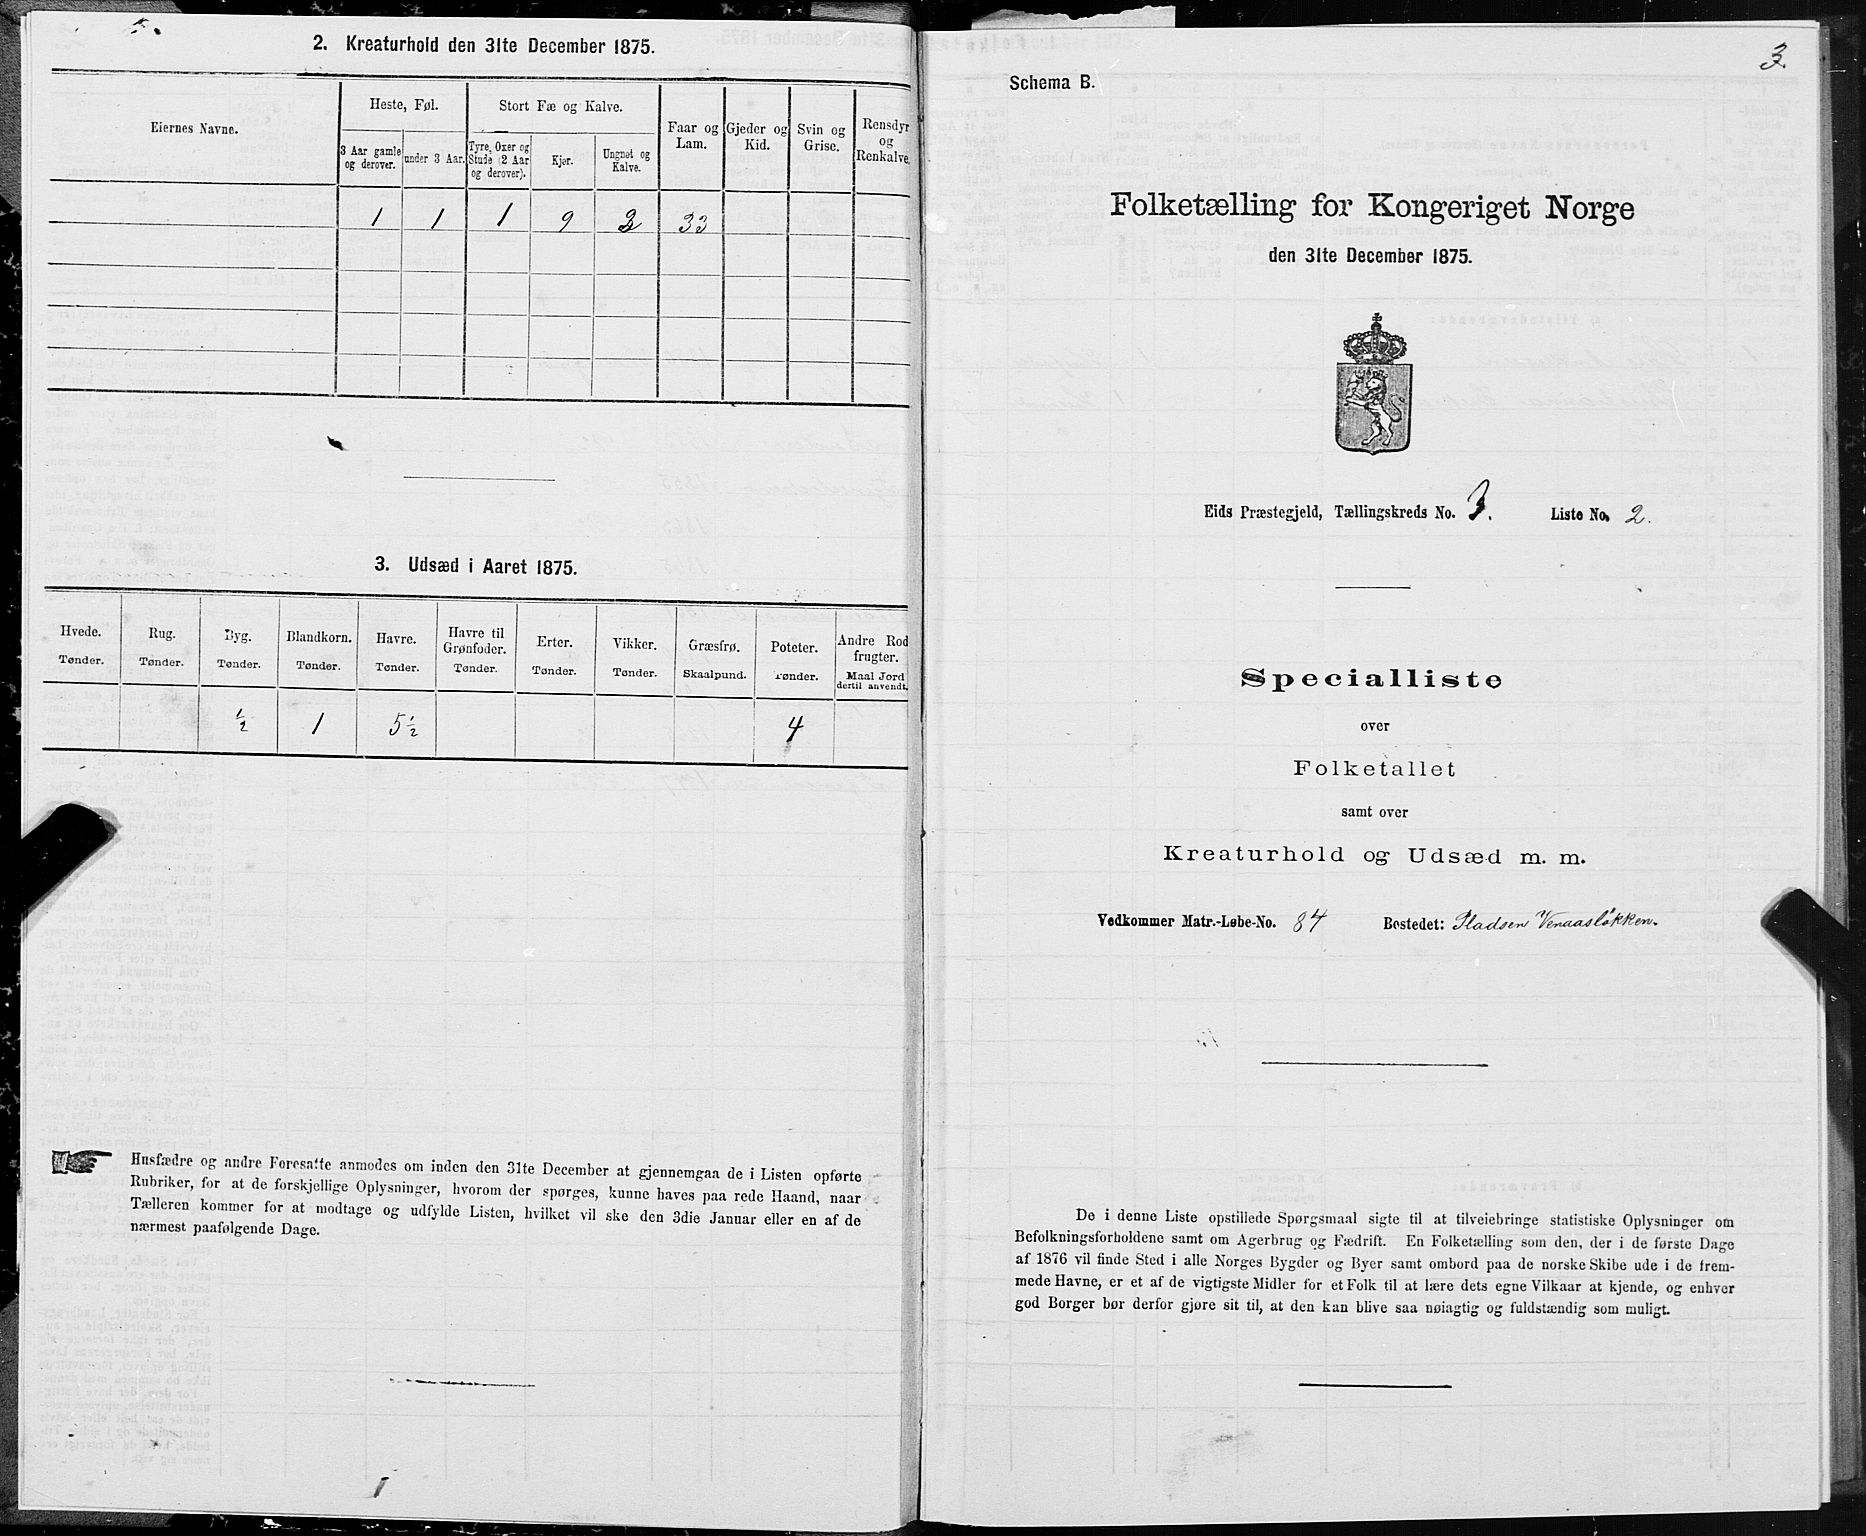 2. Kreaturhold den 31te December 1875.
Eiernes Navne.
Heste, Føl.
Stort Fæ og Kalve.
Faar og Lam.
Gjeder og Kid.
Svin og Grise.
Rensdyr og Renkalve.
3 Aar gamle og derover.
under 3 Aar.
Tyre, Oxer og Stude (2 Aar og derover).
Kjør.
Ungnøt og Kalve.
1 1 1 9 2 33
3. Udsæd i Aaret 1875.
Hvede. Rug. Byg. Blandkorn. Havre. Havre til Grønfoder. Erter. Vikker. Græsfrø. Poteter. Andre Rodfrugter.
Tønder. Tønder. Tønder. Tønder. Tønder. Tønder. Tønder. Tønder. Skaalpund. Tønder. Maal Jord dertil anvendt.
½ 1 5½ 4
Husfædre og andre Foresatte anmodes om inden den 31te December at gjennemgaa de i Listen opførte
Rubriker, for at de forskjellige Oplysninger, hvorom der spørges, kunne haves paa rede Haand, naar
Tælleren kommer for at modtage og udfylde Listen, hvilket vil ske den 3die Januar eller en af de
nærmest paafølgende Dage.
3.
Schema B.
Folketælling for Kongeriget Norge
den 31te December 1875.
Eids Præstegjeld, Tællingskreds No. 3. Liste No. 2.
Specialliste
over
Folketallet
samt over
Kreaturhold og Udsæd m. m.
Vedkommer Matr.-Løbe-No. 84 Bostedet: Pladsen Venaasløkken.
De i denne Liste opstillede Spørgsmaal sigte til at tilveiebringe statistiske Oplysninger om
Befolkningsforholdene samt om Agerbrug og Fædrift. En Folketælling som den, der i de første Dage
af 1876 vil finde Sted i alle Norges Bygder og Byer samt ombord paa de norske Skibe ude i de frem-
mede Havne, er et af de vigtigste Midler for et Folk til at lære dets egne Vilkaar at kjende, og enhver
god Borger bør derfor gjøre sit til, at den kan blive saa nøiagtig og fuldstændig som muligt.